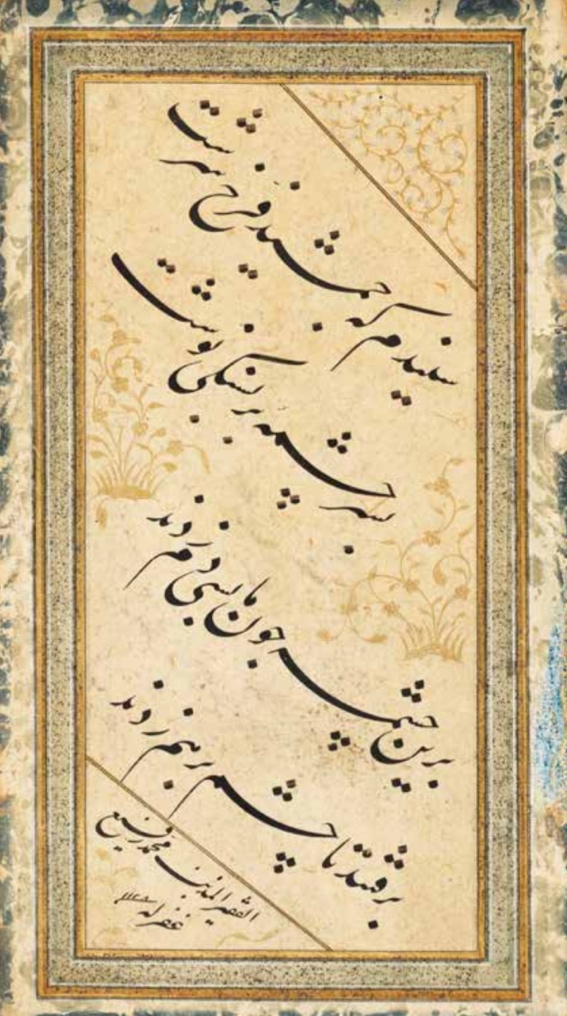 شنیدم که جمشید فرخ سرشت
بسر چشمه بر بسنگی نوشت
برین چشمه چون ما بسی دم زدند
برفتند تا چشم بر هم زدند
الفقیر المذنب محمد رفیع
غفر له